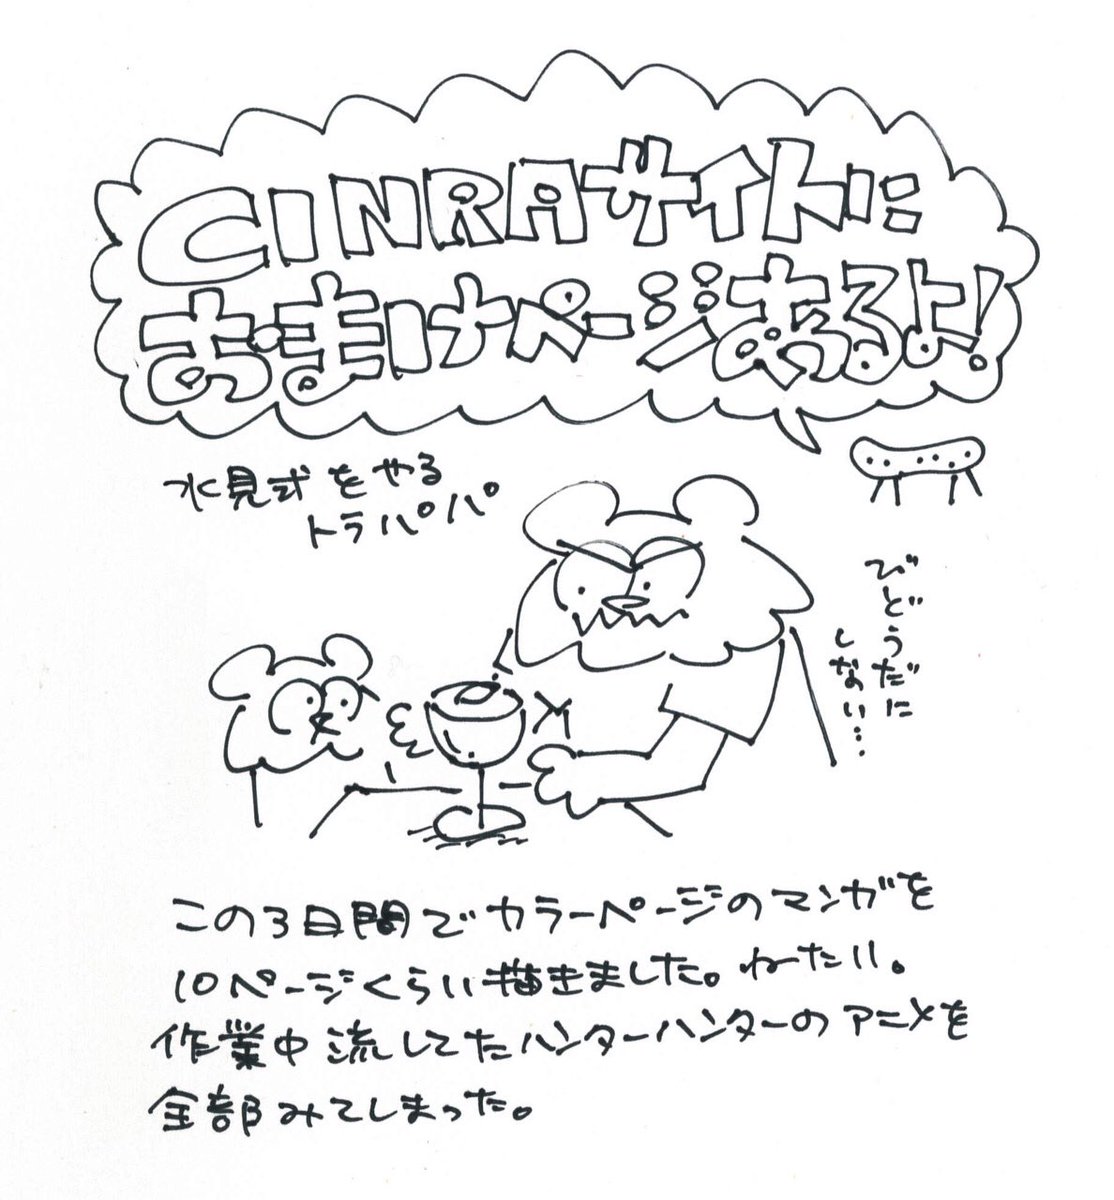 CINRAサイトに
おまけページあるよ！
水見式をやる
トラパパ
びどうだに
しない…
この3日間でカラーページのマンガを
10ページくらい描きました。ねたい。
作業中流してたハンターハンターのアニメを
全部みてしまった。